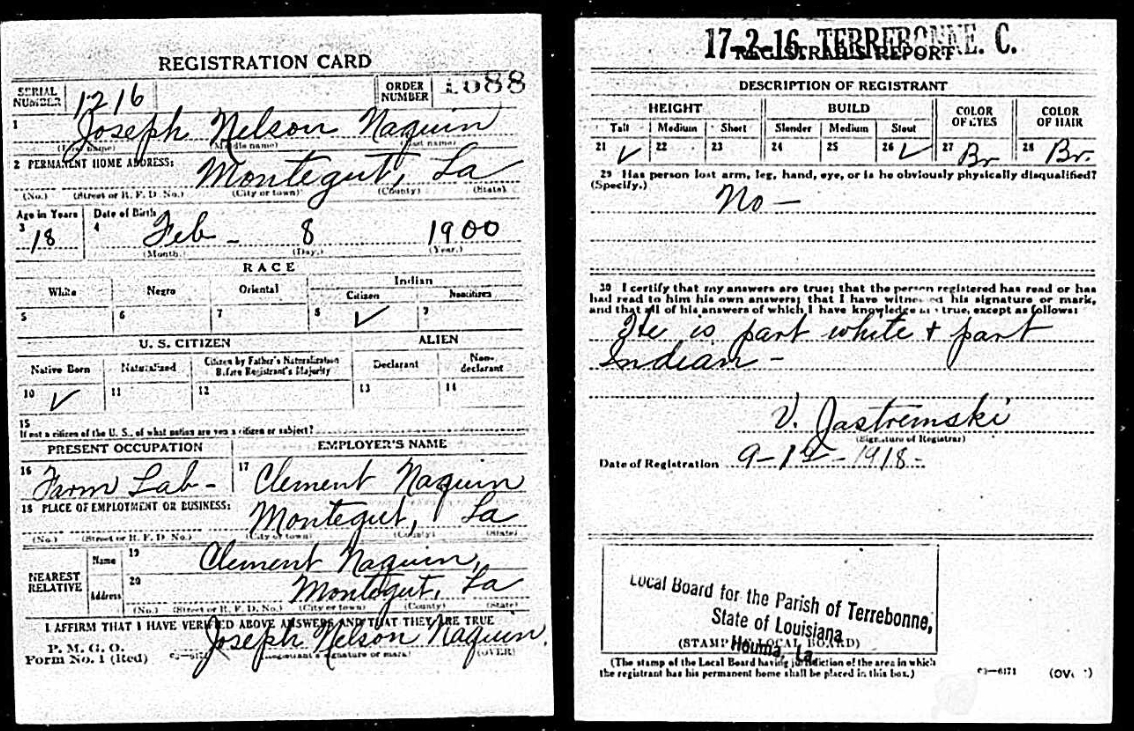 REGISTRATION CARD
SERIAL NUMBER 1216 ORDER NUMBER 1688
1 Joseph Nelson Naquin
(First name) (Middle name) (Last name)
2 PERMANENT HOME ADDRESS:
Montegut, La
(No.) (Street or R. F. D. No.) (City or town) (County) (State)
Age in Years Date of Birth
3 18 4 Feb - 8 1900
(Month.) (Day.) (Year.)
RACE
White Negro Oriental Indian
Citizen Noncitizen
5 6 7 8 ✓ 9
U. S. CITIZEN ALIEN
Native Born Naturalized Citizen by Father's Naturalization Before Registrant's Majority Declarant Non-declarant
10 ✓ 11 12 13 14
15
If not a citizen of the U. S., of what nation are you a citizen or subject?
PRESENT OCCUPATION EMPLOYER'S NAME
16 Farm Lab- 17 Clement Naquin
18 PLACE OF EMPLOYMENT OR BUSINESS:
Montegut, La
(No.) (Street or R. F. D. No.) (City or town) (County) (State)
NEAREST RELATIVE Name 19 Clement Naquin,
Address 20 Montegut, La
(No.) (Street or R. F. D. No.) (City or town) (County) (State)
I AFFIRM THAT I HAVE VERIFIED ABOVE ANSWERS AND THAT THEY ARE TRUE
P. M. G. O.
Form No. 1 (Red) Joseph Nelson Naquin.
(Registrant's signature or mark) (OVER)
17-2-16 TERREBONNE. C.
REGISTRAR'S REPORT
DESCRIPTION OF REGISTRANT
HEIGHT BUILD COLOR OF EYES COLOR OF HAIR
Tall Medium Short Slender Medium Stout
21 ✓ 22 23 24 25 26 ✓ 27 Br 28 Br.
29 Has person lost arm, leg, hand, eye, or is he obviously physically disqualified?
(Specify.)
No —
30 I certify that my answers are true; that the person registered has read or has
had read to him his own answers; that I have witnessed his signature or mark,
and that all of his answers of which I have knowledge are true, except as follows:
He is part white + part
Indian -
V. Jastremski
(Signature of Registrar)
Date of Registration 9-12-1918-
Local Board for the Parish of Terrebonne,
State of Louisiana
(STAMP OF LOCAL BOARD)
Houma, La.
(The stamp of the Local Board having jurisdiction of the area in which
the registrant has his permanent home shall be placed in this box.)
03—6171 (OVER)